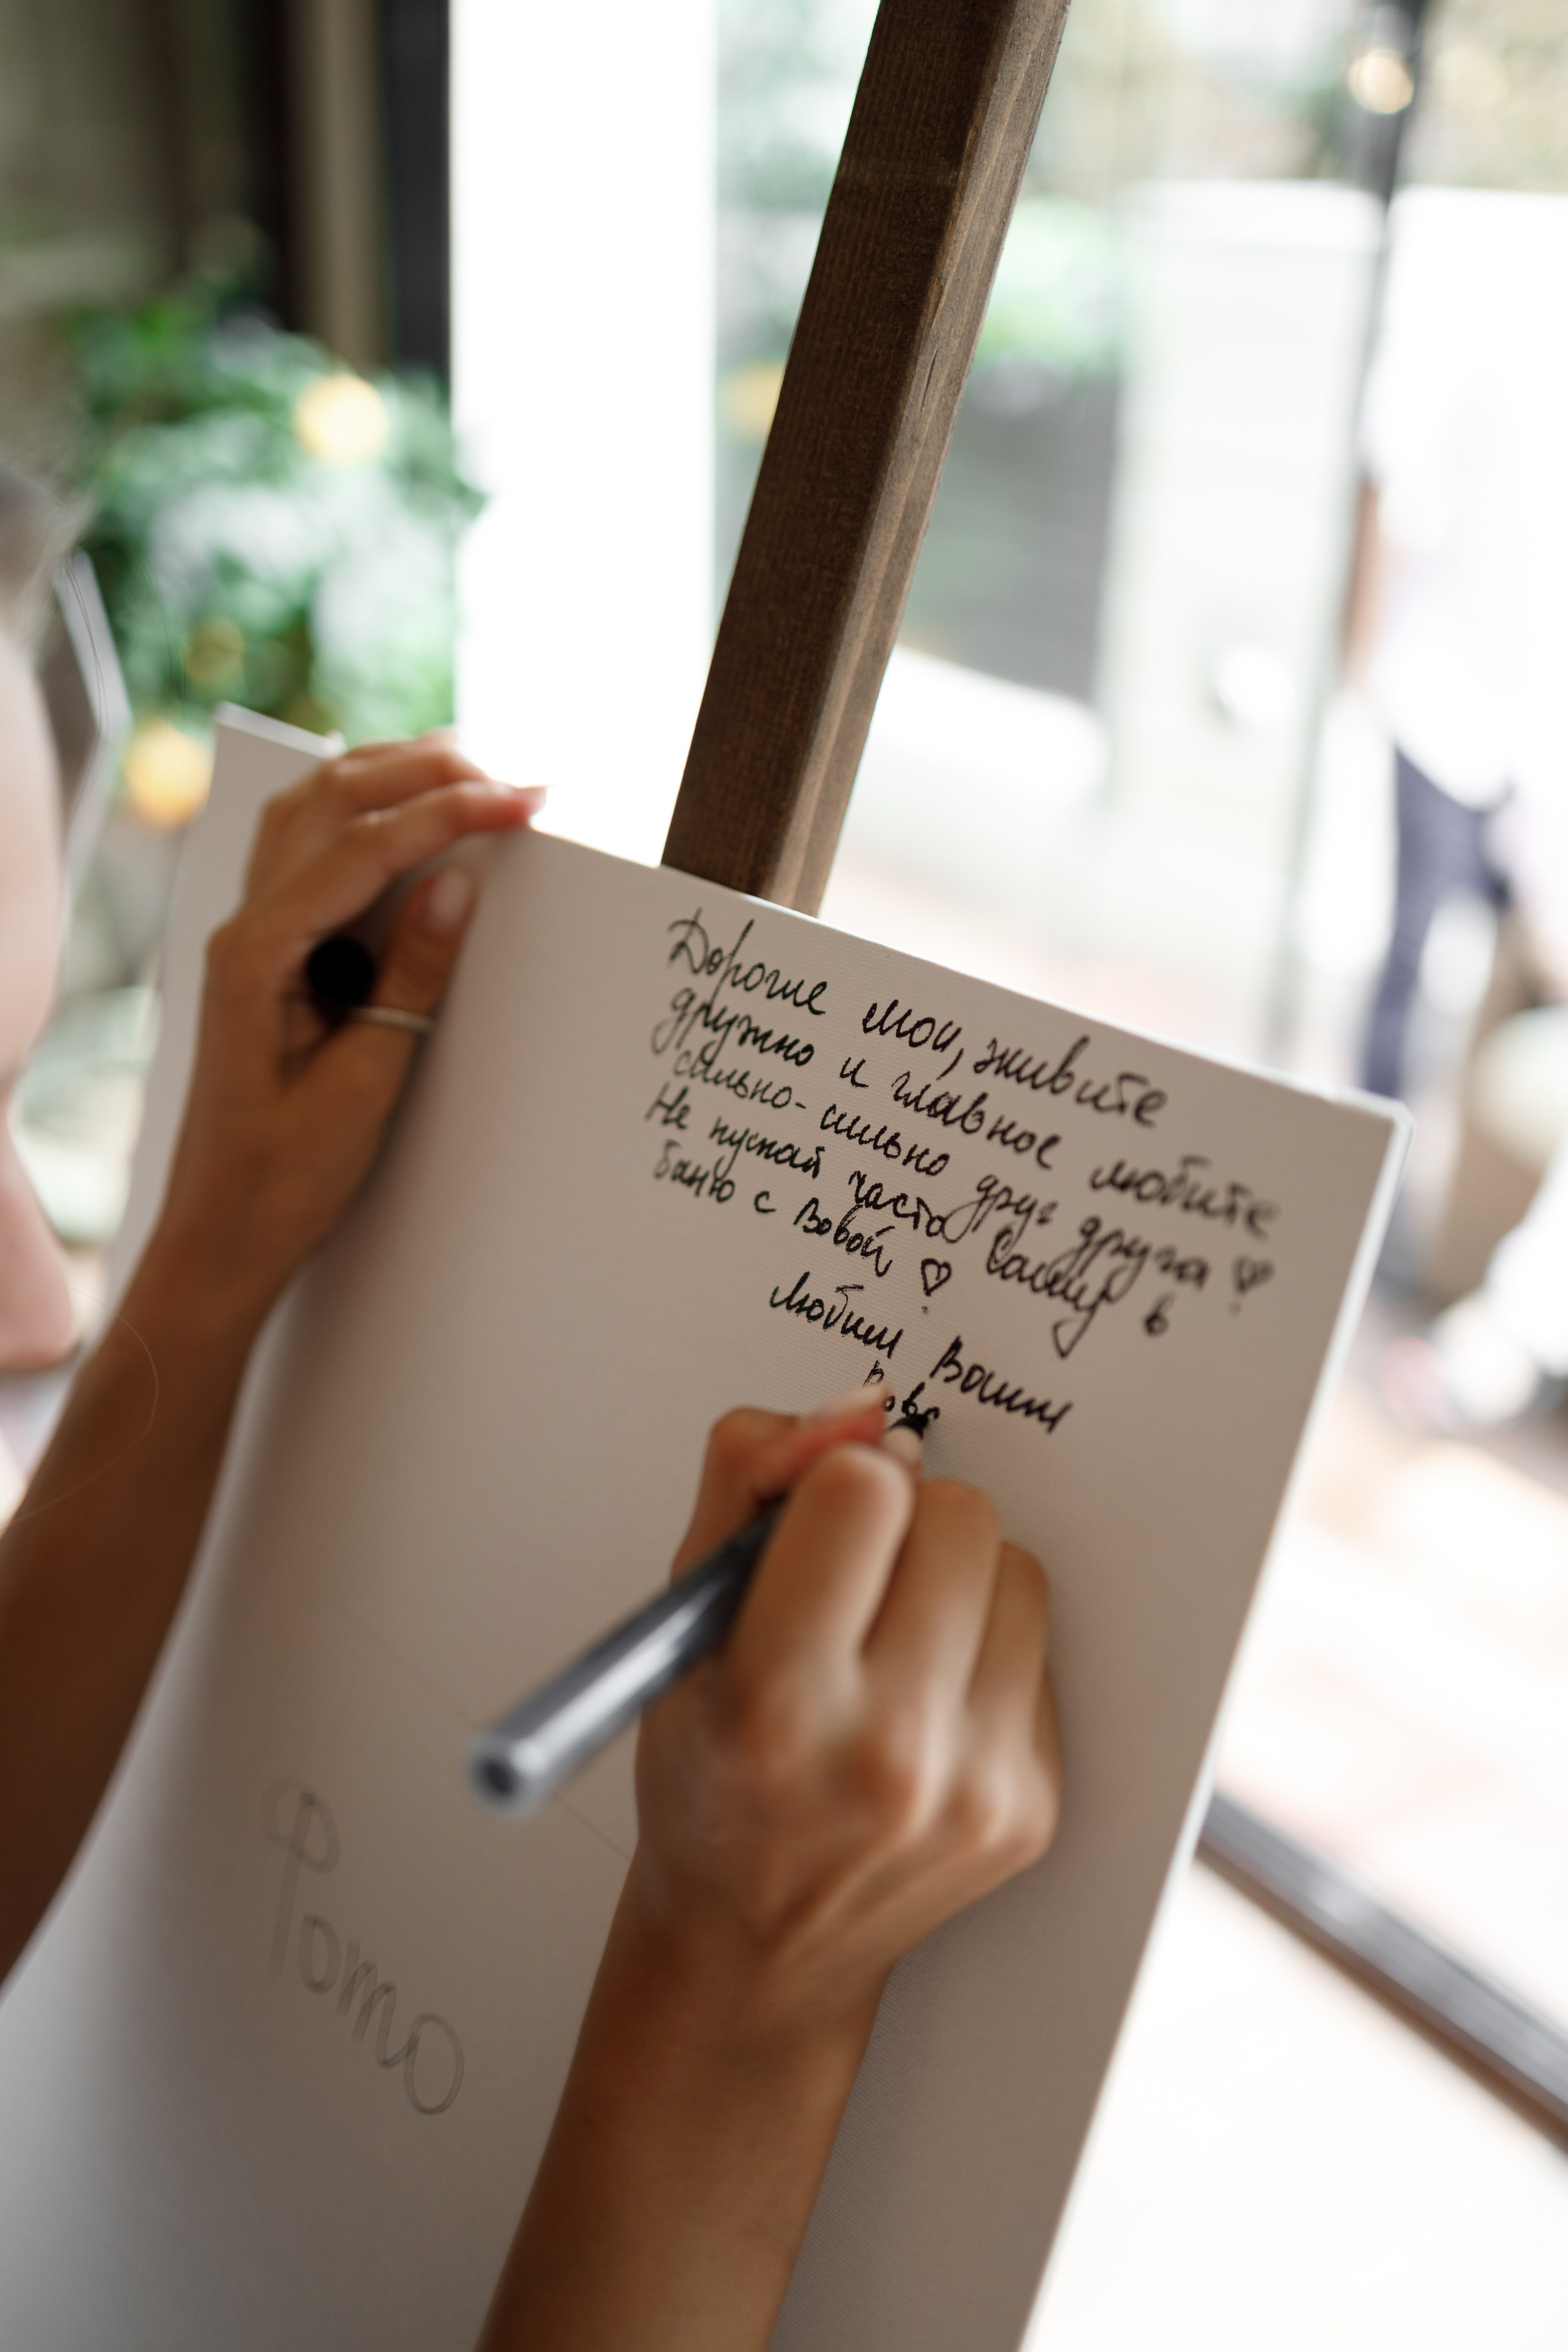 Дорогие мои, живите
дружно и главное любите
сильно-сильно друг друга ♡
Не пускай часто Сашу в
баню с Вовой ♡
Любим Ваши
Вова
Фото